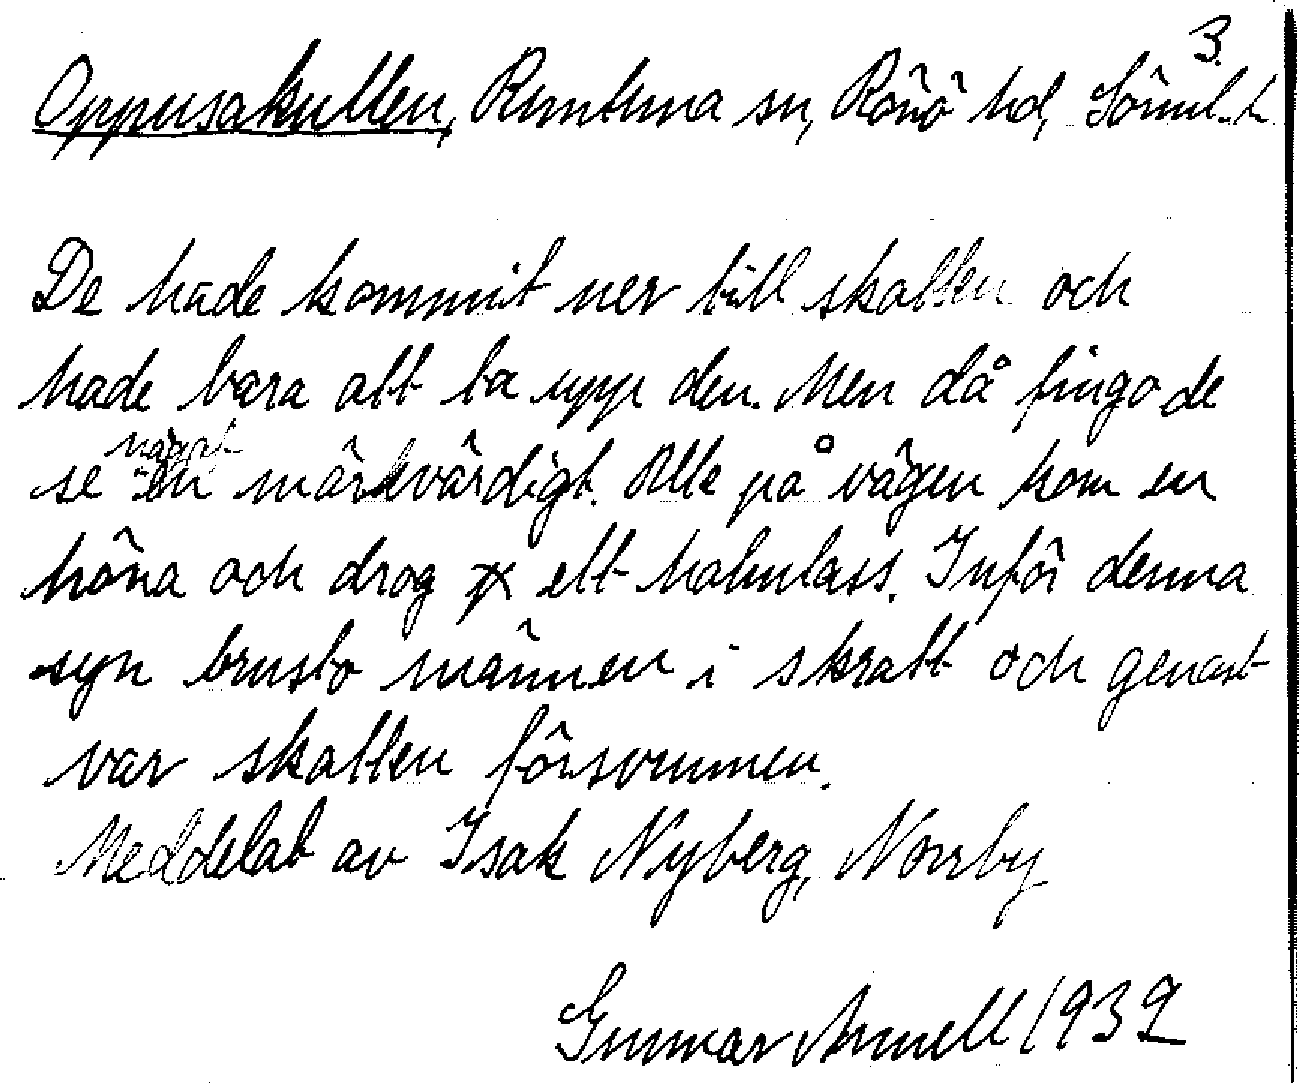 3.
Oppusakullen, Runtuna sn, Rönö hd, Sörml.
De hade kommit ner till skatten och
hade bara att ta upp den. Men då fingo de
se något märkvärdigt. Ute på vägen kom en
höna och drog ett halmlass. Inför denna
syn brusto männen i skratt och genast
var skatten försvunnen.
Meddelat av Isak Nyberg, Norrby
Gunnar 1932